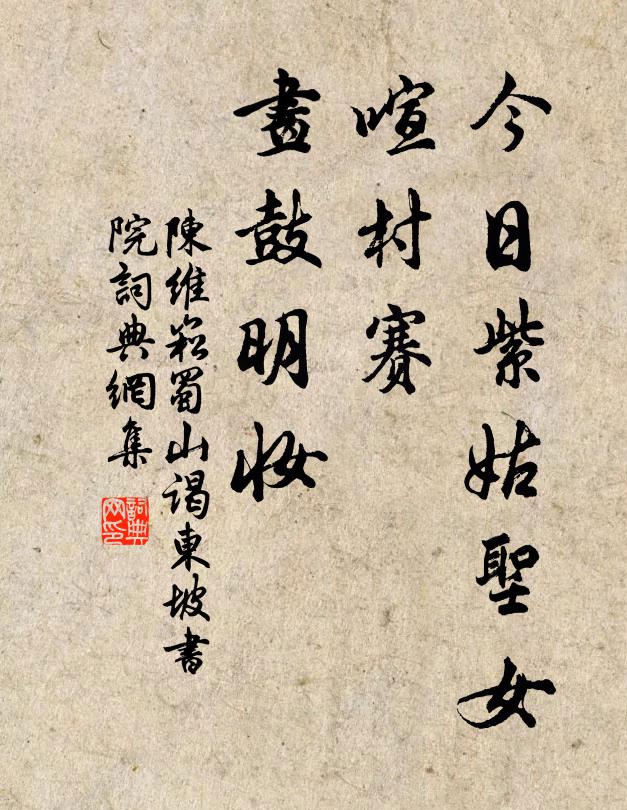 今日紫姑聖女
喧村賽
畫鼓明妝
陳維崧蜀山謁東坡書
院詞典網集
詞典
网印